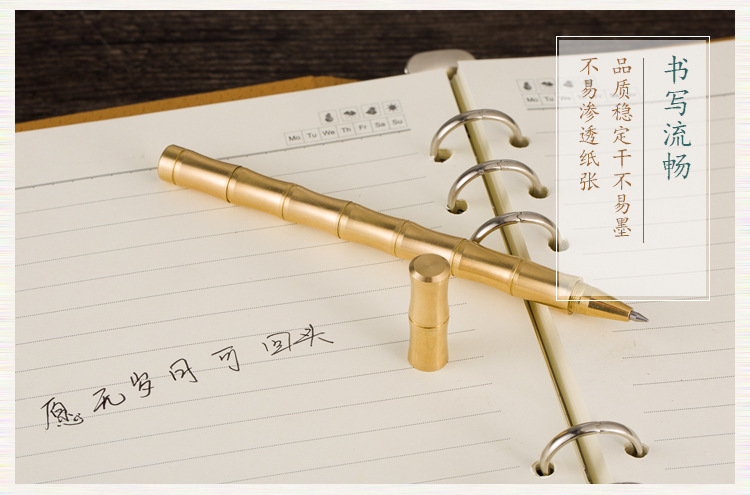 书写流畅
品质稳定干不易墨
不易渗透纸张
Mo Tu We Th Fr Sa Su
Mo Tu
愿无岁月可回头